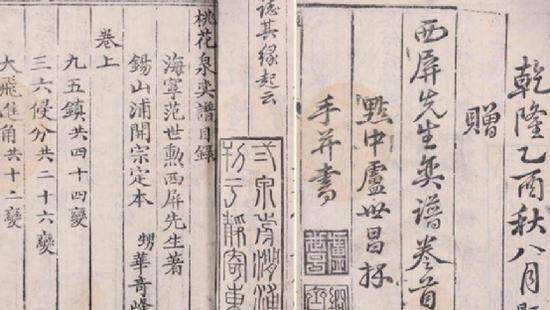 乾隆乙酉秋八月
贈
西屏先生奕譜卷首
黔中盧世昌拜
手并書
誌其緣起云
桃花泉奕譜目錄
海寧范世勳西屏先生著
錫山浦開宗定本
甥華奇峰
卷上
九五鎮共四十四變
三六侵分共二十六變
大飛進角共十二變